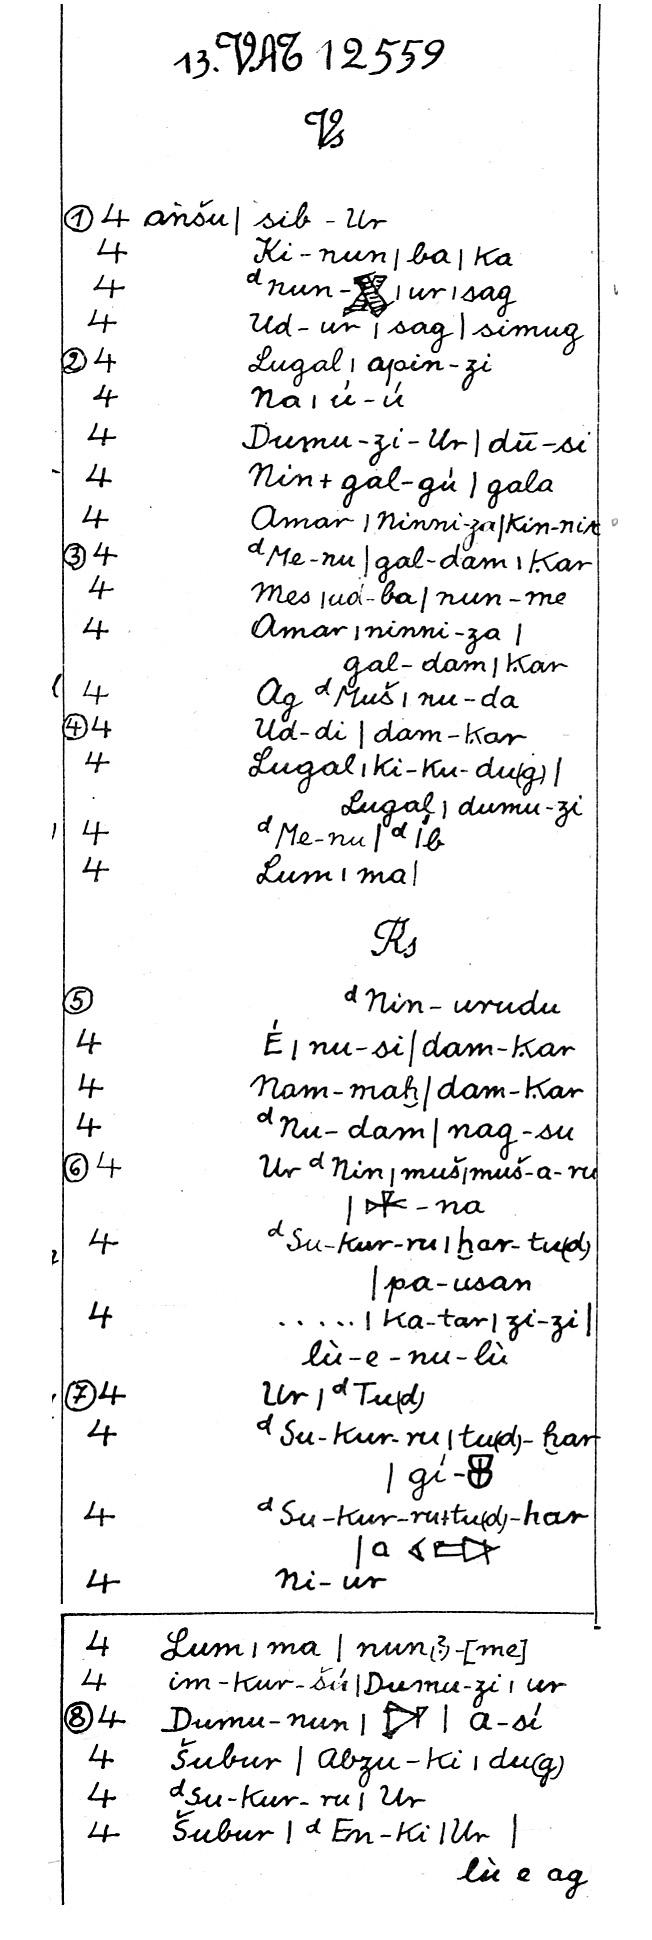 13. VAT 12559
Vs
① 4 anšu | sib - Ur
4 Ki - nun | ba | Ka
4 ᵈnun- | ur | sag
4 Ud - ur | sag | simug
② 4 Lugal | apin - zi
4 Na | ú - ú
4 Dumu - zi - Ur | dū - si
4 Nin + gal - gú | gala
4 Amar | Ninni-za | Kin-nin
③ 4 ᵈMe - nu | gal - dam | Kar
4 Mes | ud - ba | nun - me
4 Amar | ninni - za |
gal - dam | Kar
4 Ag ᵈMuš | nu - da
④ 4 Ud - di | dam - Kar
4 Lugal | Ki - Ku - du(g) |
Lugal | dumu - zi
4 ᵈMe - nu | ᵈíb
4 Lum | ma |
Rs
⑤ ᵈNin - urudu
4 É | nu - si | dam - Kar
4 Nam - maḫ | dam - Kar
4 ᵈNu - dam | nag - su
⑥ 4 Ur ᵈNin | muš | muš - a - ru
| - na
4 ᵈSu - Kur - ru | ḫar - tu(d)
| pa - usan
4 ..... | Ka - tar | zi - zi |
lù - e - nu - lù
⑦ 4 Ur | ᵈTu(d)
4 ᵈSu - Kur - ru | tu(d) - ḫar
| gí -
4 ᵈSu - Kur - ru + tu(d) - har
| a
4 Ni - ur
4 Lum | ma | nun(?) - [me]
4 im - Kur - šú | Dumu - zi | ur
⑧ 4 Dumu - nun | | a - sí
4 Šubur | Abzu - Ki | du(g)
4 ᵈSu - Kur - ru | Ur
4 Šubur | ᵈEn - Ki | Ur |
lù e ag